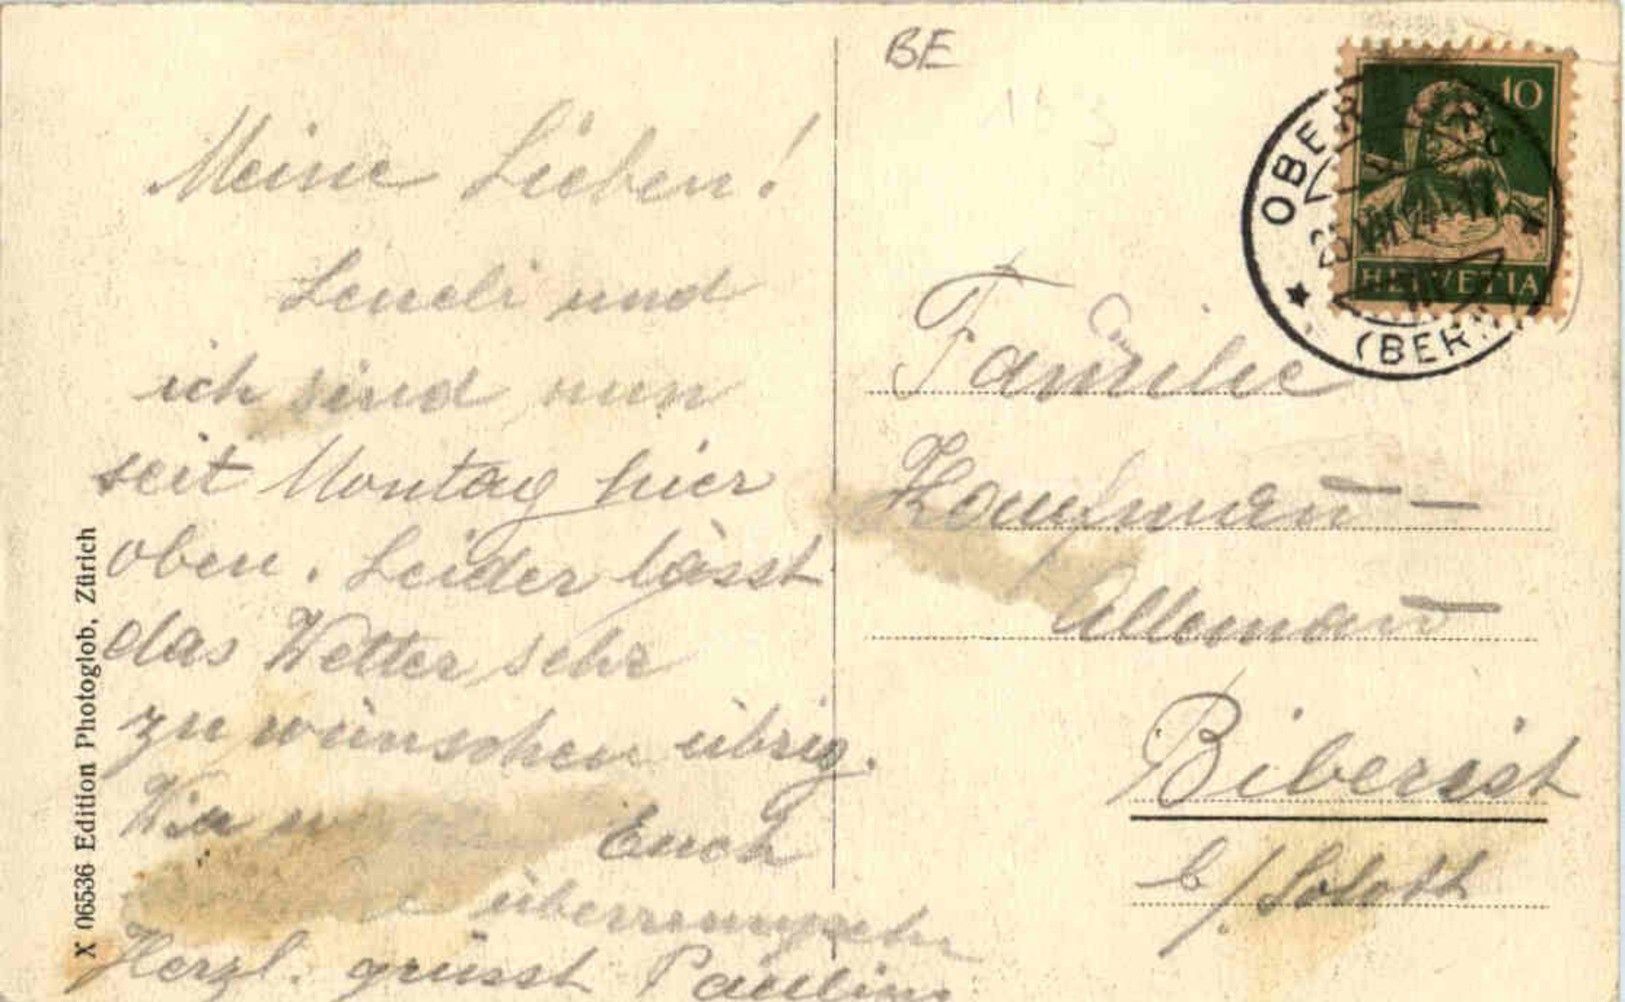 BE
Meine Lieben!
Leneli und
ich sind nun
seit Montag hier
oben. Leider lässt
das Wetter sehr
zu wünschen übrig.
Wir Euch
Herzl. grüsst Pauline
X 06536 Edition Photoglob, Zürich
10
HELVETIA
(BERN)
Familie
Kaufmann -
Allemann
Biberist
b/Soloth